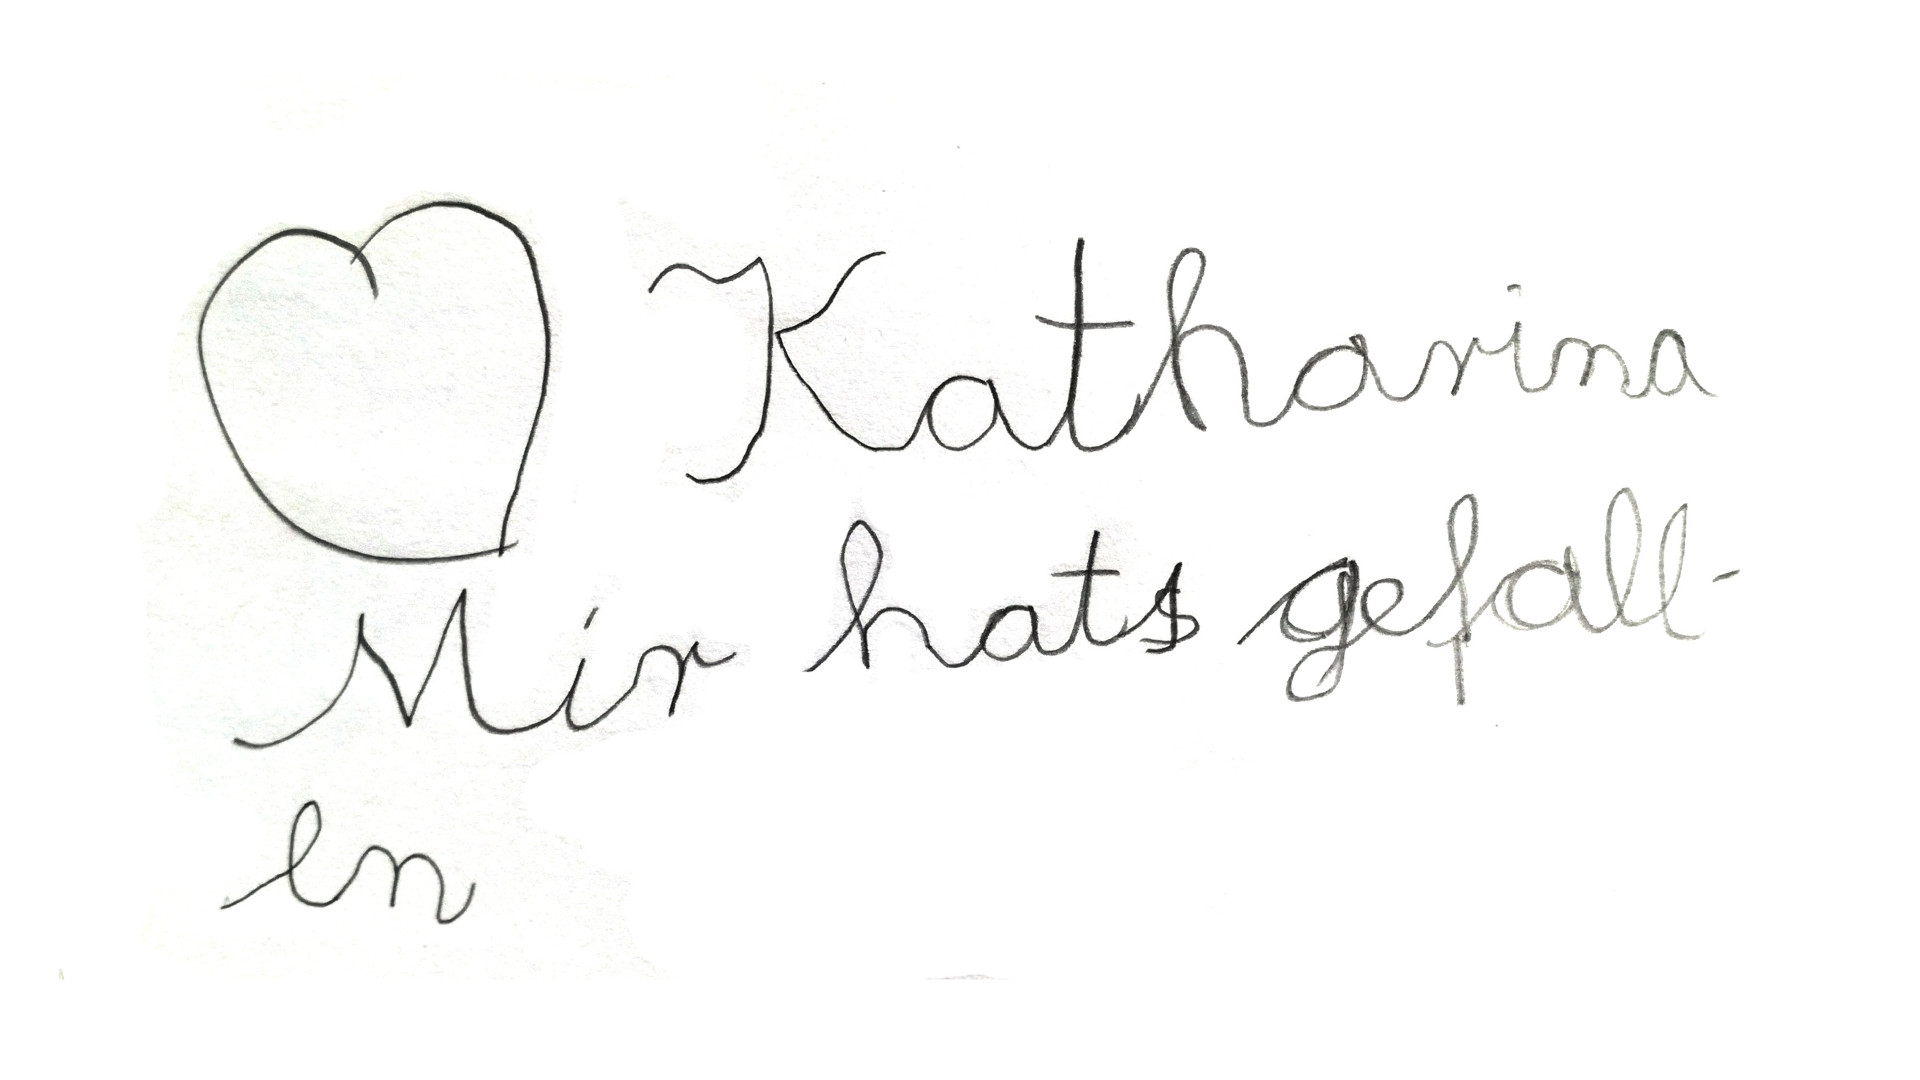 Katharina
Mir hats gefall-
en